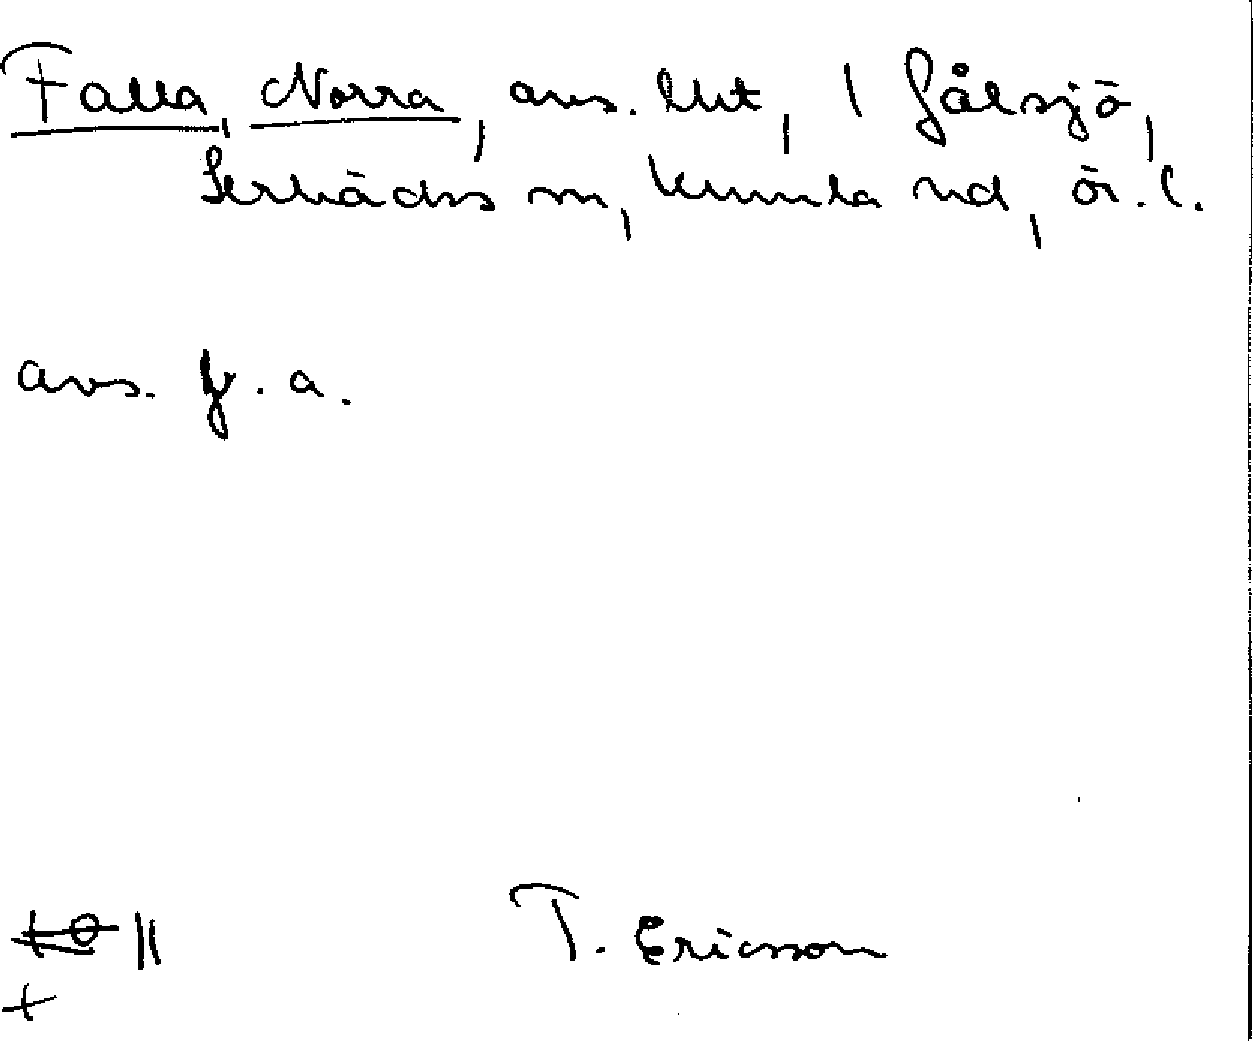 Falla, Norra, avs. lht, i Gålsjö,
Lerbäcks sn, Kumla hd, Ör. l.
avs. fr. a.
T. Ericsson